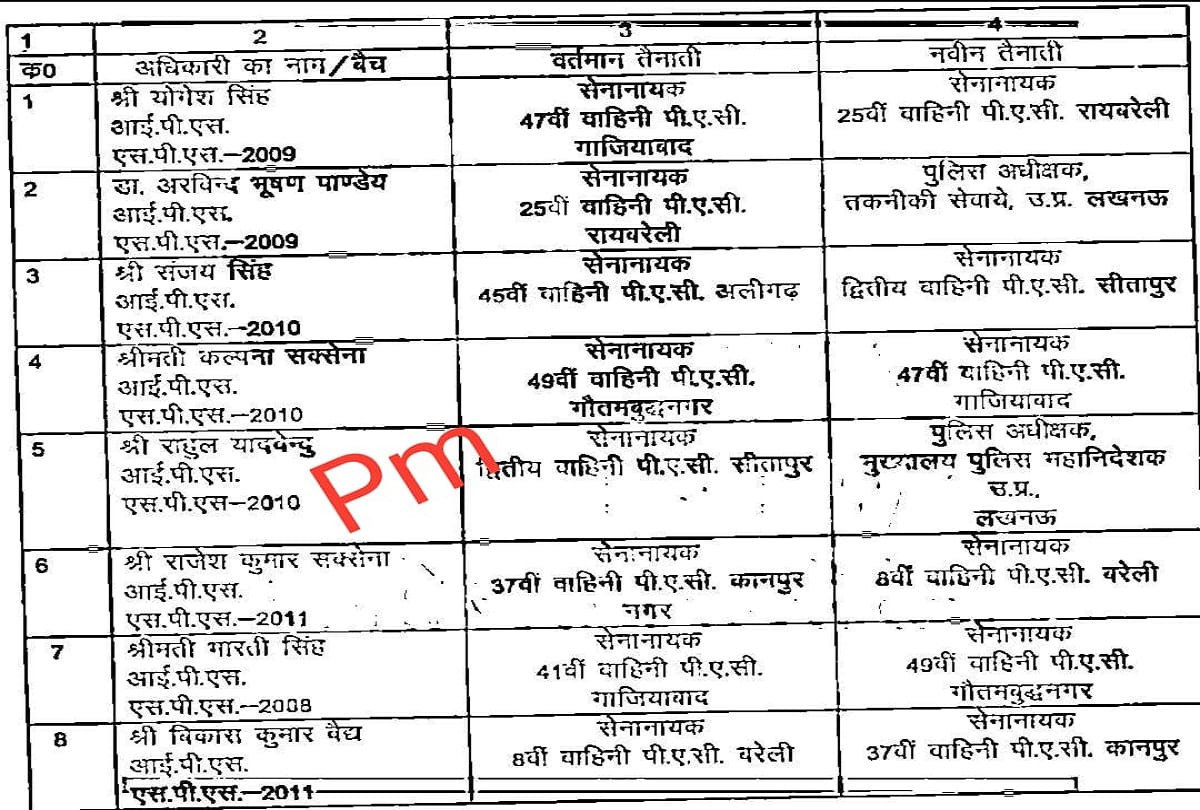 1 2 3 4
क0 अधिकारी का नाम/बैच वर्तमान तैनाती नवीन तैनाती
1 श्री योगेश सिंह
आई.पी.एस.
एस.पी.एस.–2009
सेनानायक
47वीं वाहिनी पी.ए.सी.
गाजियाबाद
सेनानायक
25वीं वाहिनी पी.ए.सी. रायबरेली
2 डा. अरविन्द भूषण पाण्डेय
आई.पी.एस.
एस.पी.एस.–2009
सेनानायक
25वीं वाहिनी पी.ए.सी.
रायबरेली
पुलिस अधीक्षक,
तकनीकी सेवाये, उ.प्र. लखनऊ
3 श्री संजय सिंह
आई.पी.एस.
एस.पी.एस.–2010
सेनानायक
45वीं वाहिनी पी.ए.सी. अलीगढ़
सेनानायक
द्वितीय वाहिनी पी.ए.सी. सीतापुर
4 श्रीमती कल्पना सक्सेना
आई.पी.एस.
एस.पी.एस.–2010
सेनानायक
49वीं वाहिनी पी.ए.सी.
गौतमबुद्धनगर
सेनानायक
47वीं वाहिनी पी.ए.सी.
गाजियाबाद
5 श्री राहुल यादवेन्दु
आई.पी.एस.
एस.पी.एस–2010
सेनानायक
द्वितीय वाहिनी पी.ए.सी. सीतापुर
पुलिस अधीक्षक,
मुख्यालय पुलिस महानिदेशक
उ.प्र.,
लखनऊ
Pm
6 श्री राजेश कुमार सक्सेना
आई.पी.एस.
एस.पी.एस.–2011
सेनानायक
37वीं वाहिनी पी.ए.सी. कानपुर
नगर
सेनानायक
8वीं वाहिनी पी.ए.सी. बरेली
7 श्रीमती भारती सिंह
आई.पी.एस.
एस.पी.एस.–2008
सेनानायक
41वीं वाहिनी पी.ए.सी.
गाजियाबाद
सेनानायक
49वीं वाहिनी पी.ए.सी.
गौतमबुद्धनगर
8 श्री विकास कुमार वैद्य
आई.पी.एस.
एस.पी.एस.–2011
सेनानायक
8वीं वाहिनी पी.ए.सी. बरेली
सेनानायक
37वीं वाहिनी पी.ए.सी. कानपुर